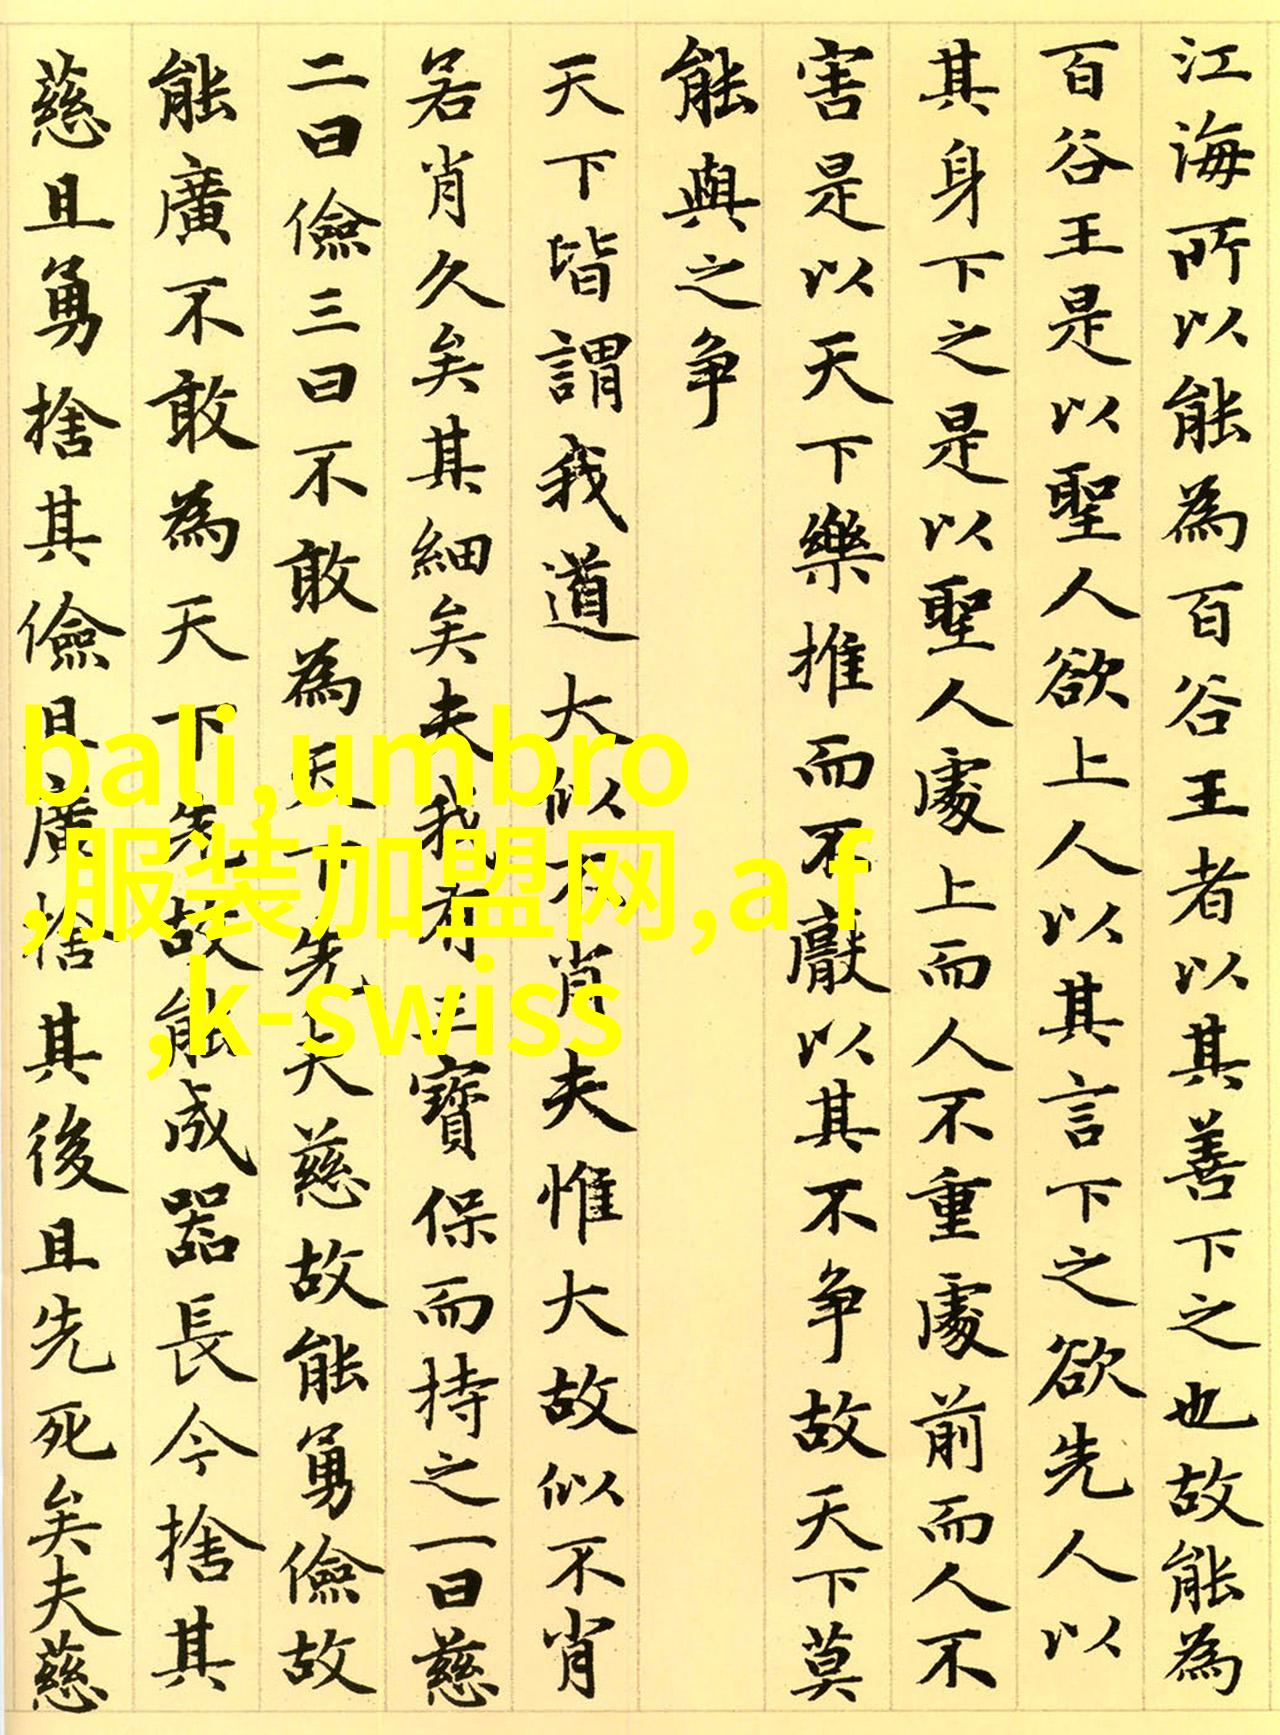 江海所以能為百谷王者以其善下之也故能為
百谷王是以聖人欲上人以其言下之欲先人以
其身下之是以聖人處上而人不重處前而人不
害是以天下樂推而不厭以其不争故天下莫
能與之争
天下皆謂我道大似不肖夫惟大故似不肖
若肖久矣其細矣夫我有三寶保而持之一曰慈
二曰儉三曰不敢為天下先夫慈故能勇儉故
能廣不敢為天下先故能成器長今捨其
慈且勇捨其儉且廣捨其後且先死矣夫慈
bali,umbro
,服装加盟网,a f
,k-swiss